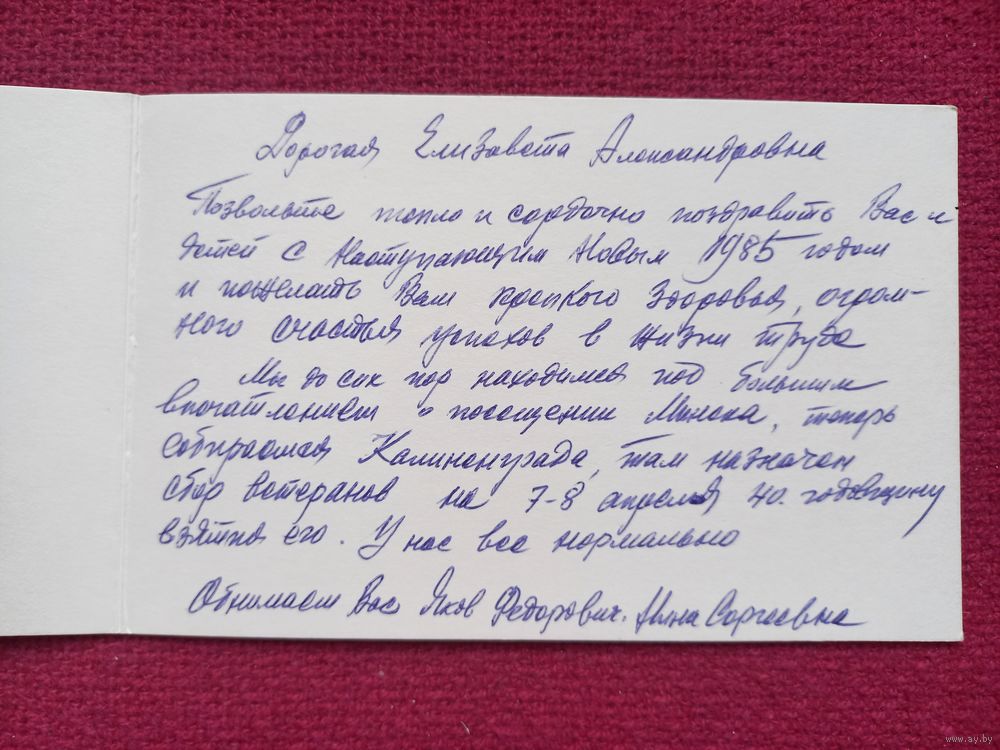 Дорогая Елизавета Александровна
Позвольте тепло и сердечно поздравить Вас и
детей с наступающим Новым 1985 годом
и пожелать Вам крепкого здоровья, огром-
ного счастья успехов в жизни труде
Мы до сих пор находимся под большим
впечатлением о посещении Минска, теперь
собираемся Калининграда, там назначен
сбор ветеранов на 7-8 апреля 40. годовщину
взятия его. У нас все нормально
Обнимаем Вас Яков Федорович. Нина Сергеевна
www.ay.by